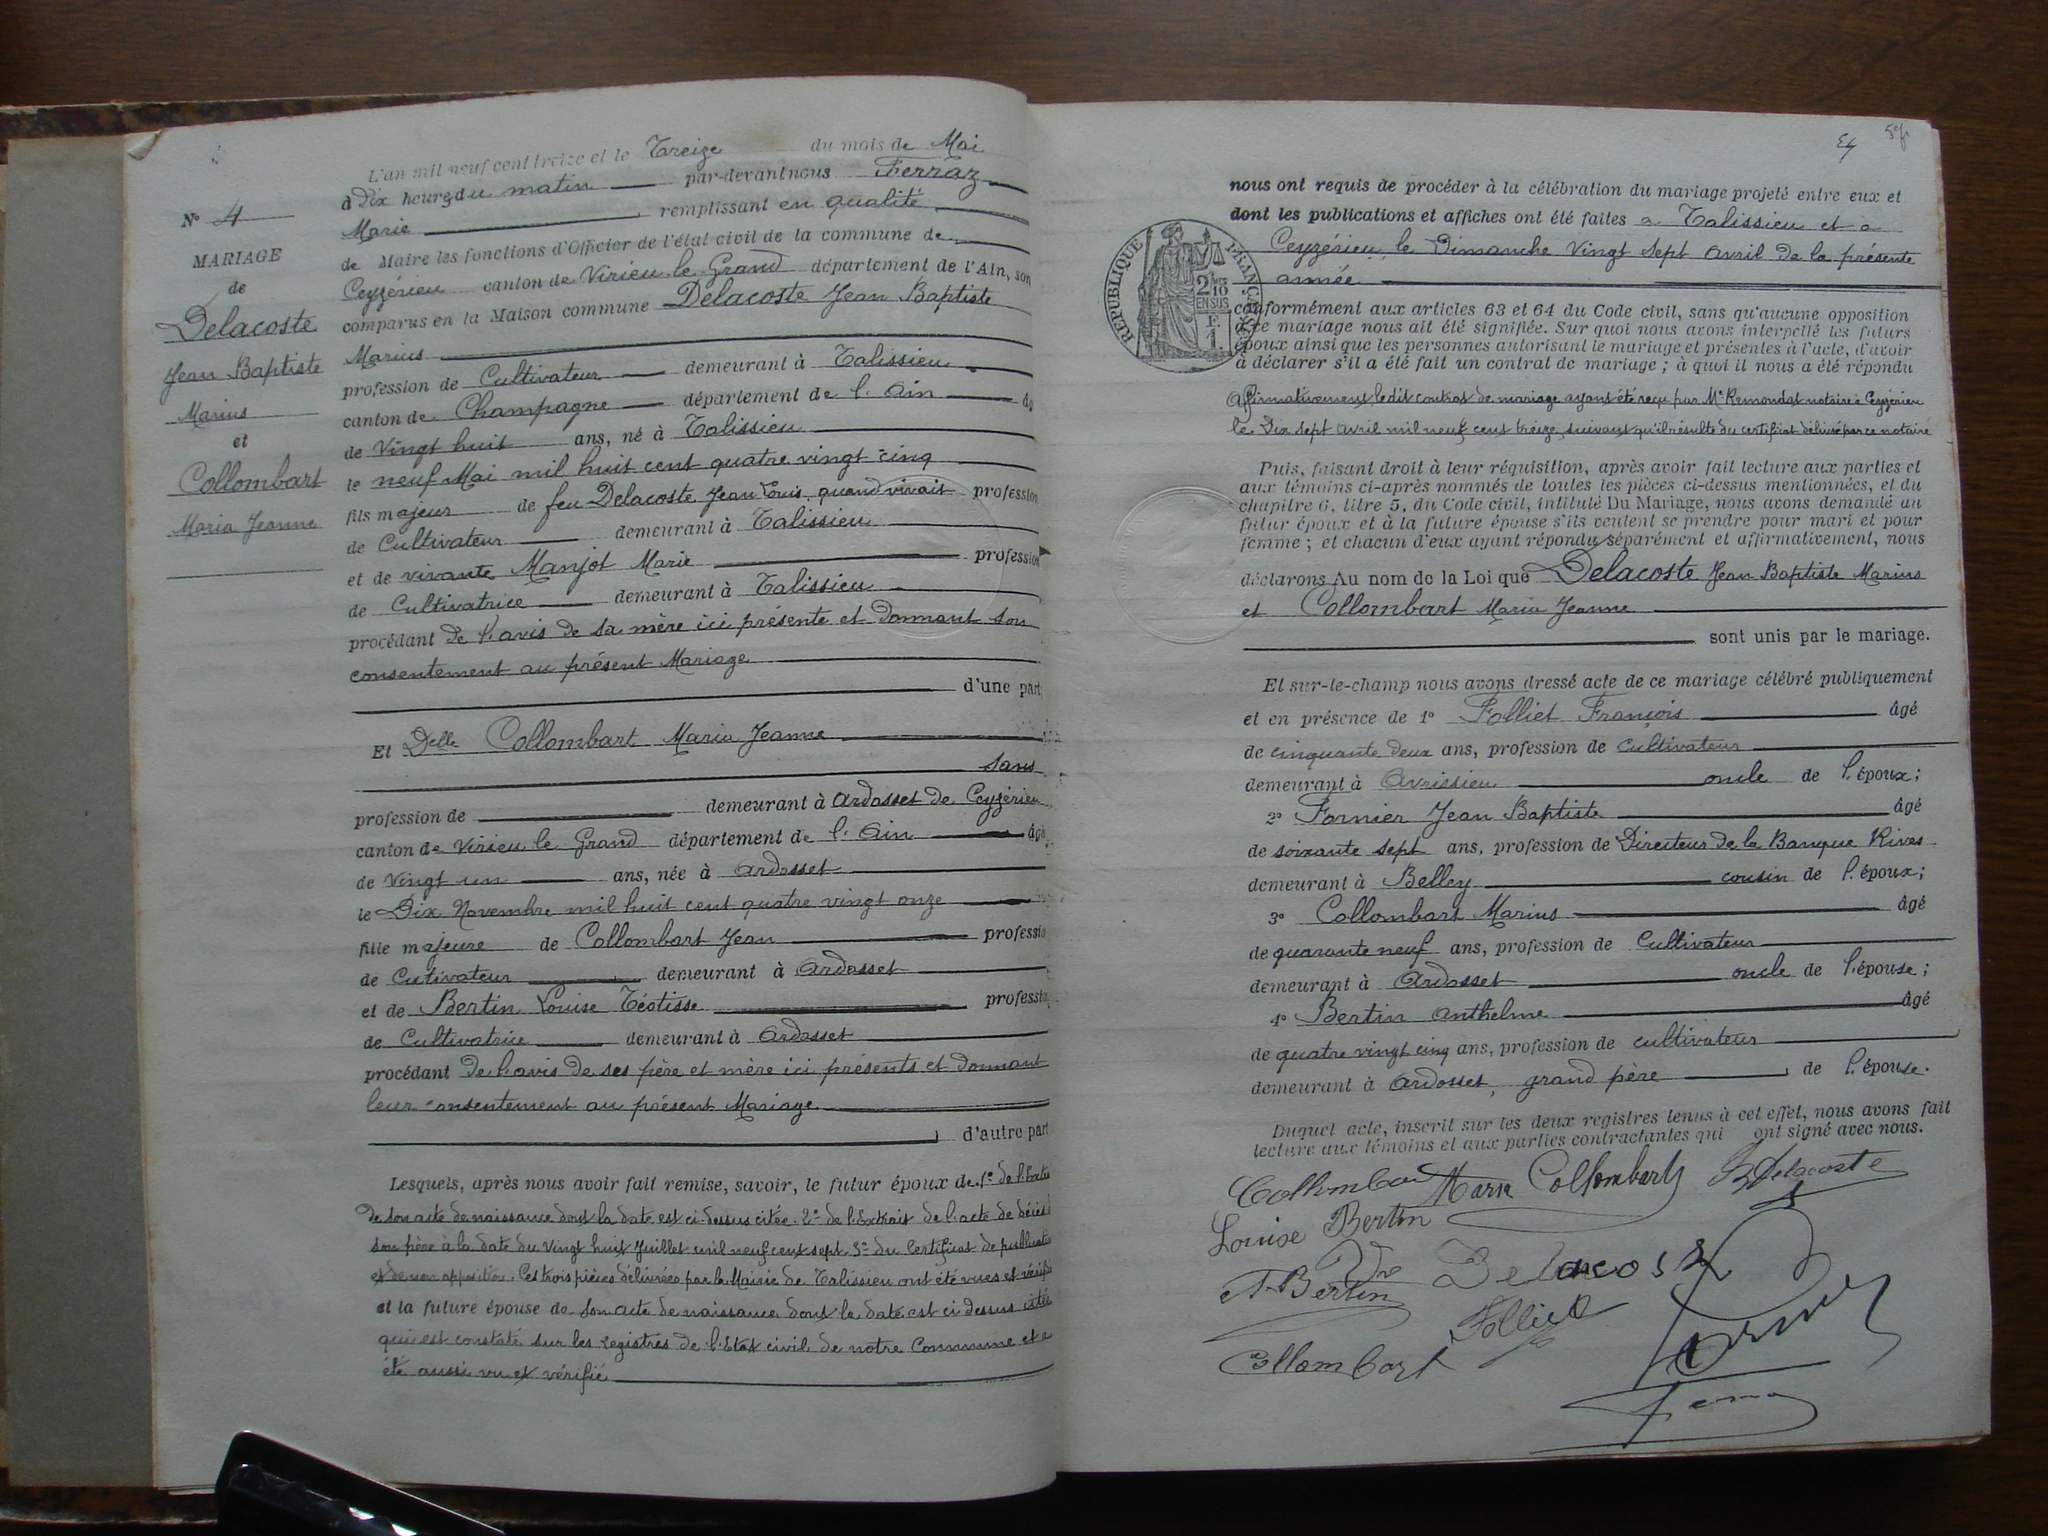 N° 4
MARIAGE
de
Delacoste
Jean Baptiste
Marius
et
Collombart
Maria Jeanne
L'an mil neuf cent treize et le Treize du mois de Mai
à Dix heures du matin par-devant nous Ferraz
Marie remplissant en qualité
de Maire les fonctions d'Officier de l'état civil de la commune de
Ceyzérieu canton de Virieu-le-Grand département de l'Ain, son
comparus en la Maison commune Delacoste Jean Baptiste
Marius
profession de Cultivateur demeurant à Talissieu
canton de Champagne département de l'Ain âg
de Vingt huit ans, né à Talissieu
le neuf Mai mil huit cent quatre vingt cinq
fils majeur de feu Delacoste Jean Louis, quand vivait profession
de Cultivateur demeurant à Talissieu
et de vivante Manjot Marie profession
de Cultivatrice demeurant à Talissieu
procédant de l'avis de sa mère ici présente et donnant son
consentement au présent Mariage
d'une part
Et Delle Collombart Maria Jeanne
sans
profession de demeurant à Ardosset de Ceyzérieu
canton de Virieu le Grand département de l'Ain âgé
de Vingt un ans, née à Ardosset
le Dix Novembre mil huit cent quatre vingt onze
fille majeure de Collombart Jean professio
de Cutivateur demeurant à Ardosset
et de Bertin Louise Téotisse professio
de Cultivatrice demeurant à Ardosset
procédant de l'avis de ses père et mère ici présents et donnant
leur consentement au présent Mariage
d'autre part
Lesquels, après nous avoir fait remise, savoir, le futur époux de 1° de l'Extrait
de son acte de naissance dont la date est ci-dessus citée. 2° de l'Extrait de l'acte de décès
son père à la date du Vingt huit Juillet mil neuf cent sept 3° du Certificat de publicatio
et de non opposition. Ces trois pièces délivrées par la Mairie de Talissieu ont été vues et vérifié
et la future épouse de Son acte de naissance dont la date est ci dessus citée
qui est constaté sur les registres de l'Etat civil de notre Commune et a
été aussi vu et vérifié
54
nous ont requis de procéder à la célébration du mariage projeté entre eux et
dont les publications et affiches ont été faites a Talissieu et a
Ceyzérieu, le Dimanche Vingt sept avril de la présente
année
RÉPUBLIQUE FRANÇAISE
2/10 EN SUS
F.
1.
conformément aux articles 63 et 64 du Code civil, sans qu'aucune opposition
à ce mariage nous ait été signifiée. Sur quoi nous avons interpellé les futurs
époux ainsi que les personnes autorisant le mariage et présentes à l'acte, d'avoir
à déclarer s'il a été fait un contrat de mariage ; à quoi il nous a été répondu
Affirmativement ledit contrat de mariage ayant été reçu par Me Remondat notaire à Ceyzérieu
le Dix sept avril mil neuf cent treize, suivant qu'il résulte du certificat délivré par ce notaire
Puis, faisant droit à leur réquisition, après avoir fait lecture aux parties et
aux témoins ci-après nommés de toutes les pièces ci-dessus mentionnées, et du
chapitre 6, titre 5, du Code civil, intitulé Du Mariage, nous avons demandé au
futur époux et à la future épouse s'ils veulent se prendre pour mari et pour
femme ; et chacun d'eux ayant répondu séparément et affirmativement, nous
déclarons Au nom de la Loi que Delacoste Jean Baptiste Marius
et Collombart Maria Jeanne
sont unis par le mariage.
Et sur-le-champ nous avons dressé acte de ce mariage célébré publiquement
et en présence de 1° Folliet François âgé
de cinquante deux ans, profession de cultivateur
demeurant à Avrissieu oncle de l'époux;
2° Fornier Jean Baptiste âgé
de soixante sept ans, profession de Directeur de la Banque Rives
demeurant à Belley cousin de l'époux;
3° Collombart Marius âgé
de quarante neuf ans, profession de Cultivateur
demeurant à Ardosset oncle de l'épouse;
4° Bertin Anthelme âgé
de quatre vingt cinq ans, profession de cultivateur
demeurant à Ardosset, grand père de l'épouse.
Duquel acte, inscrit sur les deux registres tenus à cet effet, nous avons fait
lecture aux témoins et aux parties contractantes qui ont signé avec nous.
Collombart Maria Collombart Delacoste
Louise Bertin
A. Bertin Vve Delacoste
Folliet
Collombart